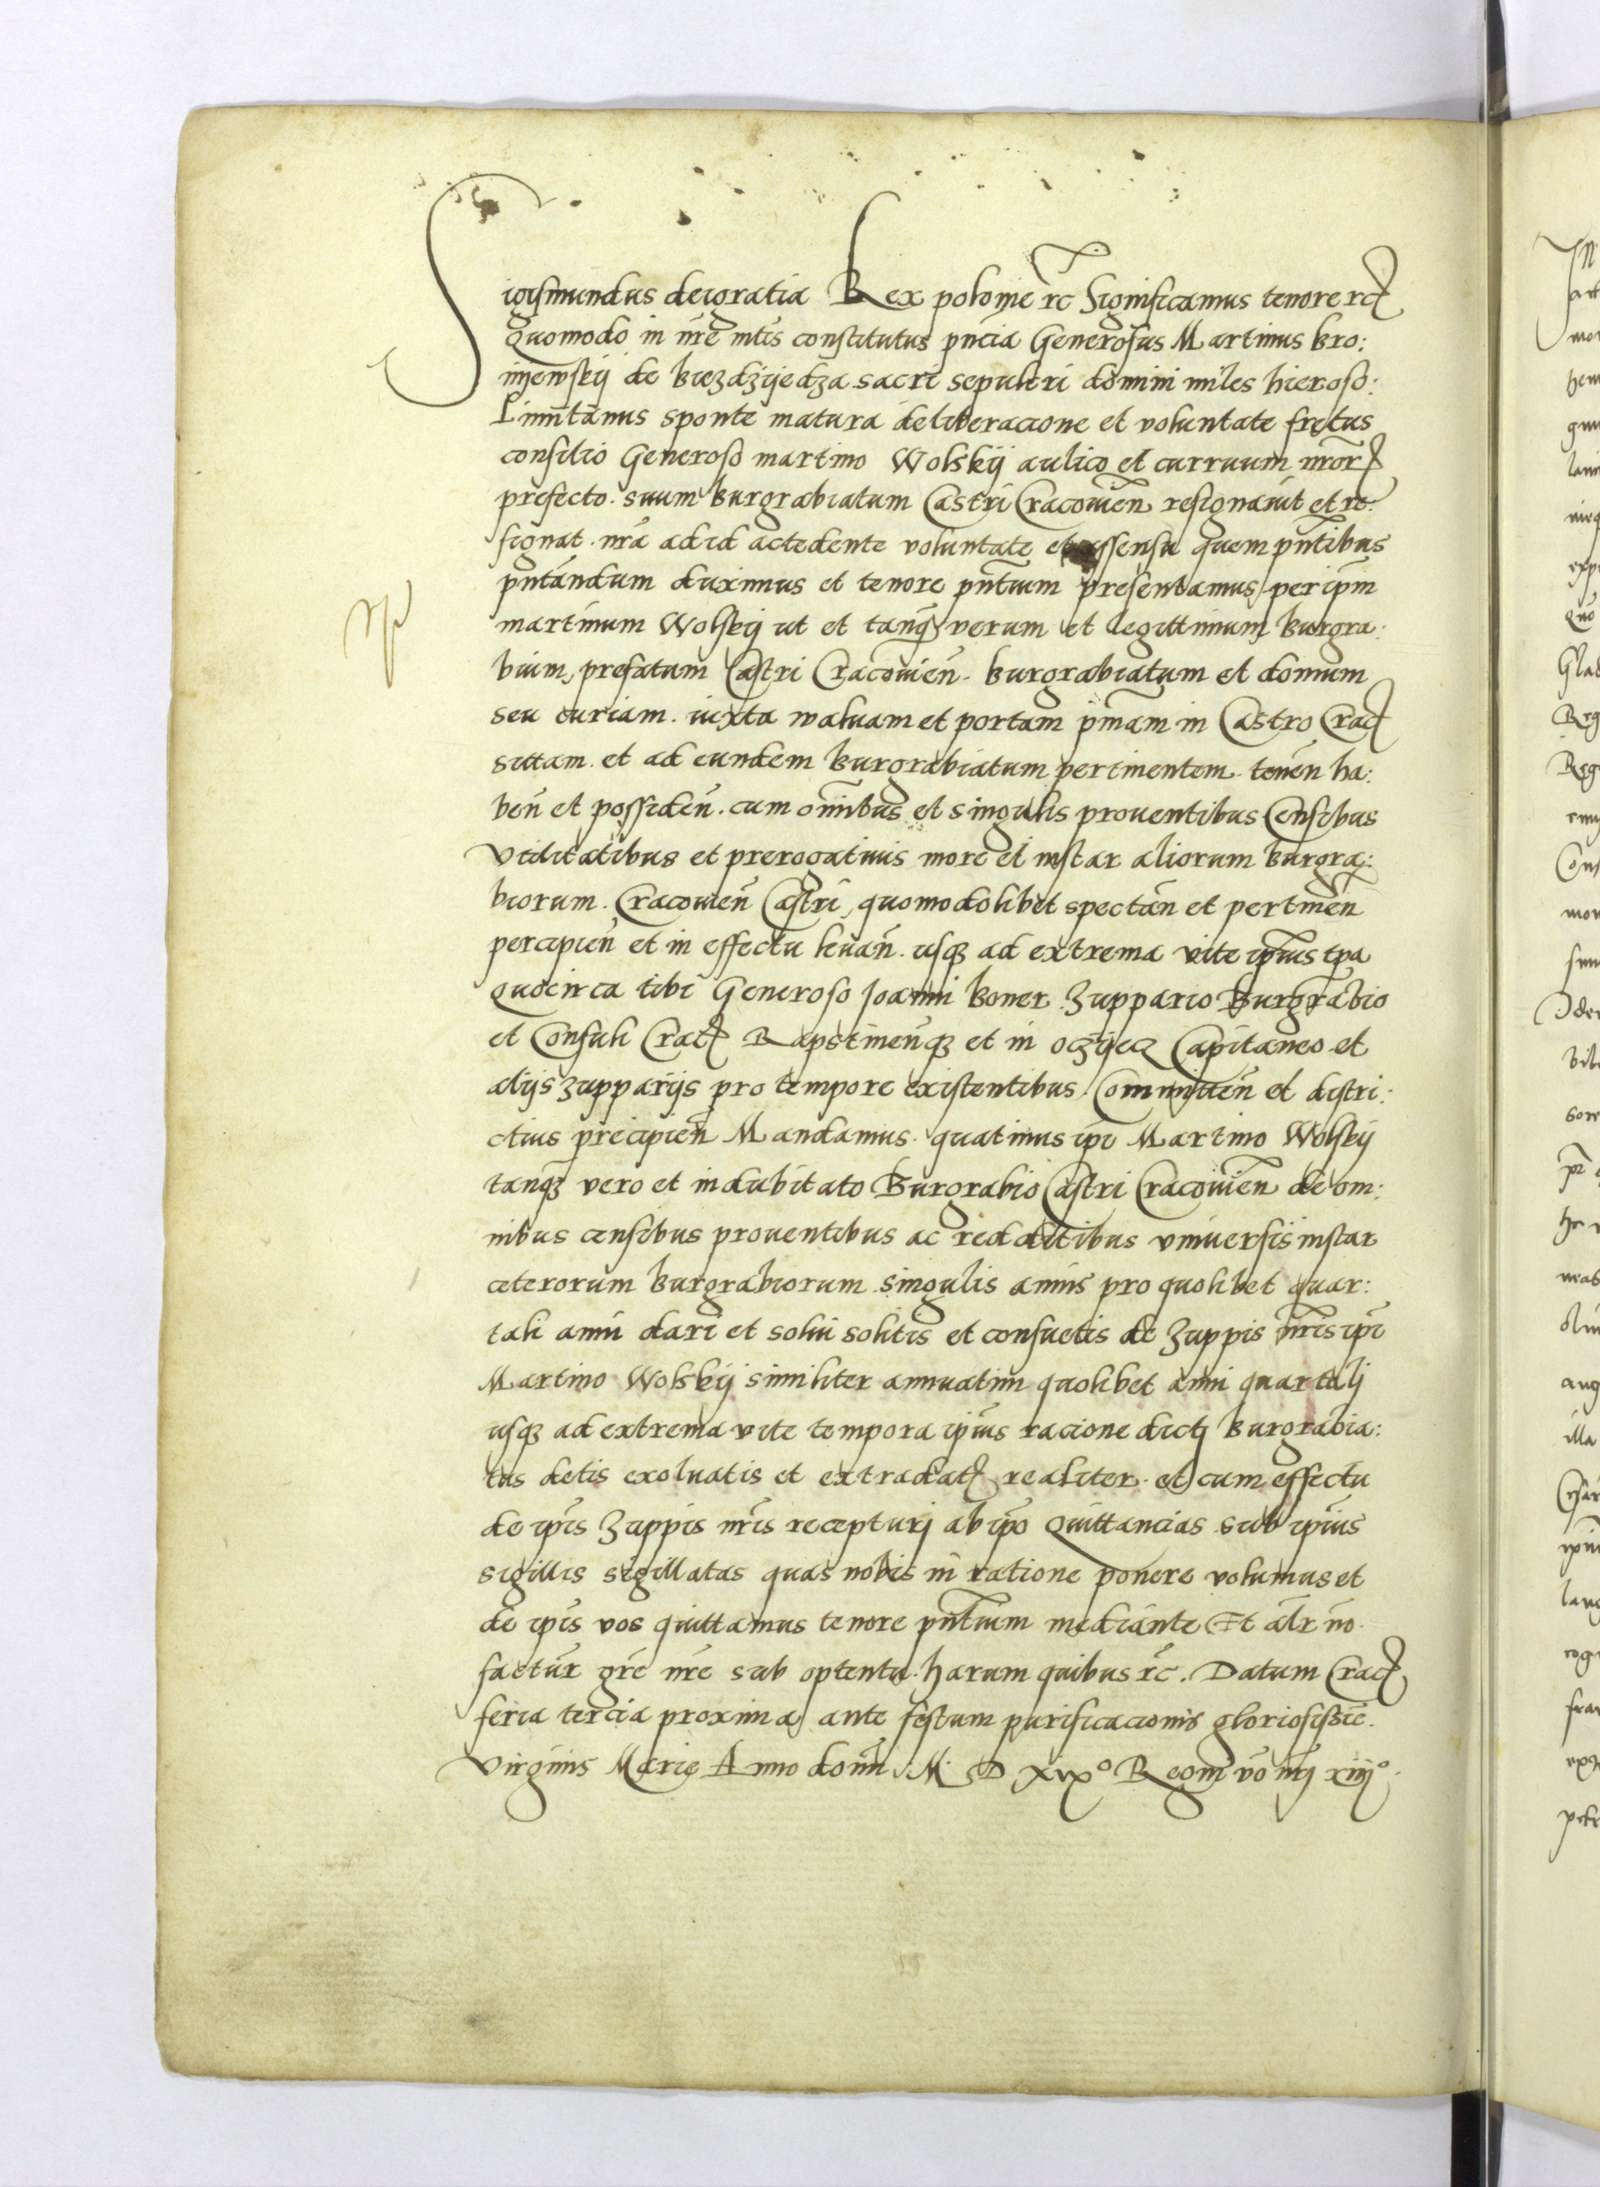 Sigismundus dei gratia Rex polonie rc Significamus tenore rc
Quomodo in nre mtis constitutus pncia Generosus Martinus kro:
nijewskij de biezdzijedza sacri sepulcri domini miles hieroso:
Limitanus sponte matura deliberacione et voluntate fretus
consilio Generoso martino Wolskij aulico et curruum nror
prefecto. suum burgrabiatum Castri Cracovien resignavit et re:
signat. nra ad id accedente voluntate et assensu quem pntibus
pntandum duximus et tenore pntium presentamus, per ipm
martinum Wolskij ut et tanq verum et legittimum burgra:
bium, prefatum Castri Cracovien. burgrabiatum et domum
seu curiam. iuxta walvam et portam pmam in Castro Crac
sittam. et ad eundem burgrabiatum pertinentem. tenen ha:
ben et possiden. cum omnibus et singulis proventibus Censibus
Vtilitatibus et prerogativis more et instar aliorum burgra:
biorum. Cracovien Castri, quomodolibet spectan et pertinen
percipien et in effectu levan. usq ad extrema vite ipius tpa
Quocirca tibi Generoso Joanni boner Zuppario Burgrabio
et Consuli Crac Rapstinenq et in oczijecz Capitaneo. et
alijs Zupparijs pro tempore existentibus. Committen et distri:
ctius precipien Mandamus. quatinus ipi Martino Wolskij
tanq vero et indubitato Burgrabio Castri Cracovien de om:
nibus censibus proventibus ac redditibus vniversis instar
ceterorum burgrabiorum singulis annis pro quolibet quar:
tali anni dari et solvi solitis et consuetis de Zuppis nris ipi
Martino Wolskij similiter annuatim quolibet anni quartalj
usq ad extrema vite tempora ipius racione dictj burgrabia:
tus detis exolvatis et extradat realiter. et cum effectu
de ipis Zuppis nris recepturj ab ipo Quittancias sub ipius
sigillis sigillatas quas nobis in ratione ponere volumus et
de ipis vos quittamus tenore pntium mediante Et alr no.
factur gre nre sub optentu. harum quibus rc. Datum Crac
feria tercia proxima ante festum purificacionis gloriosissie.
Virginis Marie Anno domi M. D xix° Regni vo nrj xiij°.